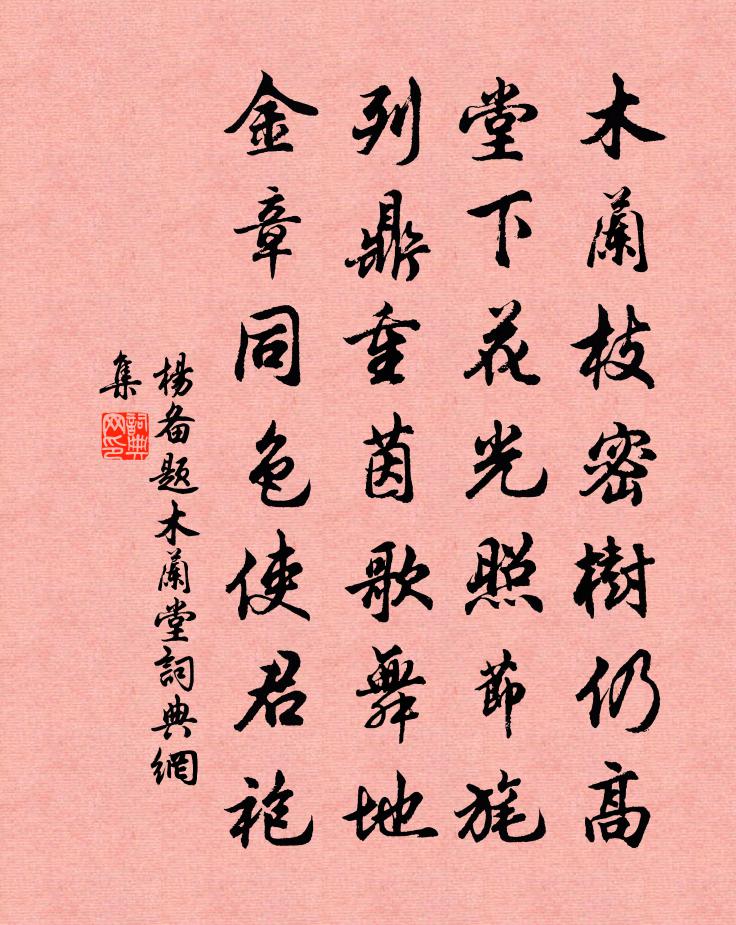 木蘭枝密樹仍高
堂下花光照節旄
列鼎重茵歌舞地
金章同色使君袍
楊备題木蘭堂詞典網
集
詞典网印